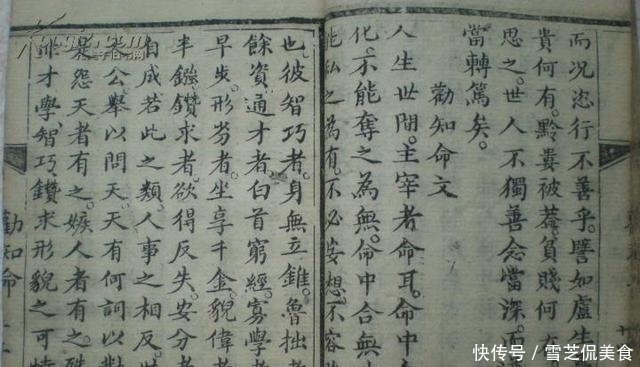 而况恣行不善乎。譬如盧生
貴何有。黔婁被菴。貧賤何
思之。世人不獨善念當深。而
當轉篤矣。
勸知命文
人生世間。主宰者命耳。命中
化。不能奪之為無。命中合無
能私之為有。不必妄想。不容
也。彼智巧者。身無立錐。魯拙者
餘資。通才者。白首窮經。寡學者
早步。形劣者。坐享千金。貌偉者
半鏹。鑽求者。欲得反失。安分者
自成。若此之類。人事之相反。
天公舉以問天。天有何詞以對
是怨天者有之。嫉人者有之。殊
非才學智巧鑽求形貌之可
勸知命
快传号／雪芝侃美食